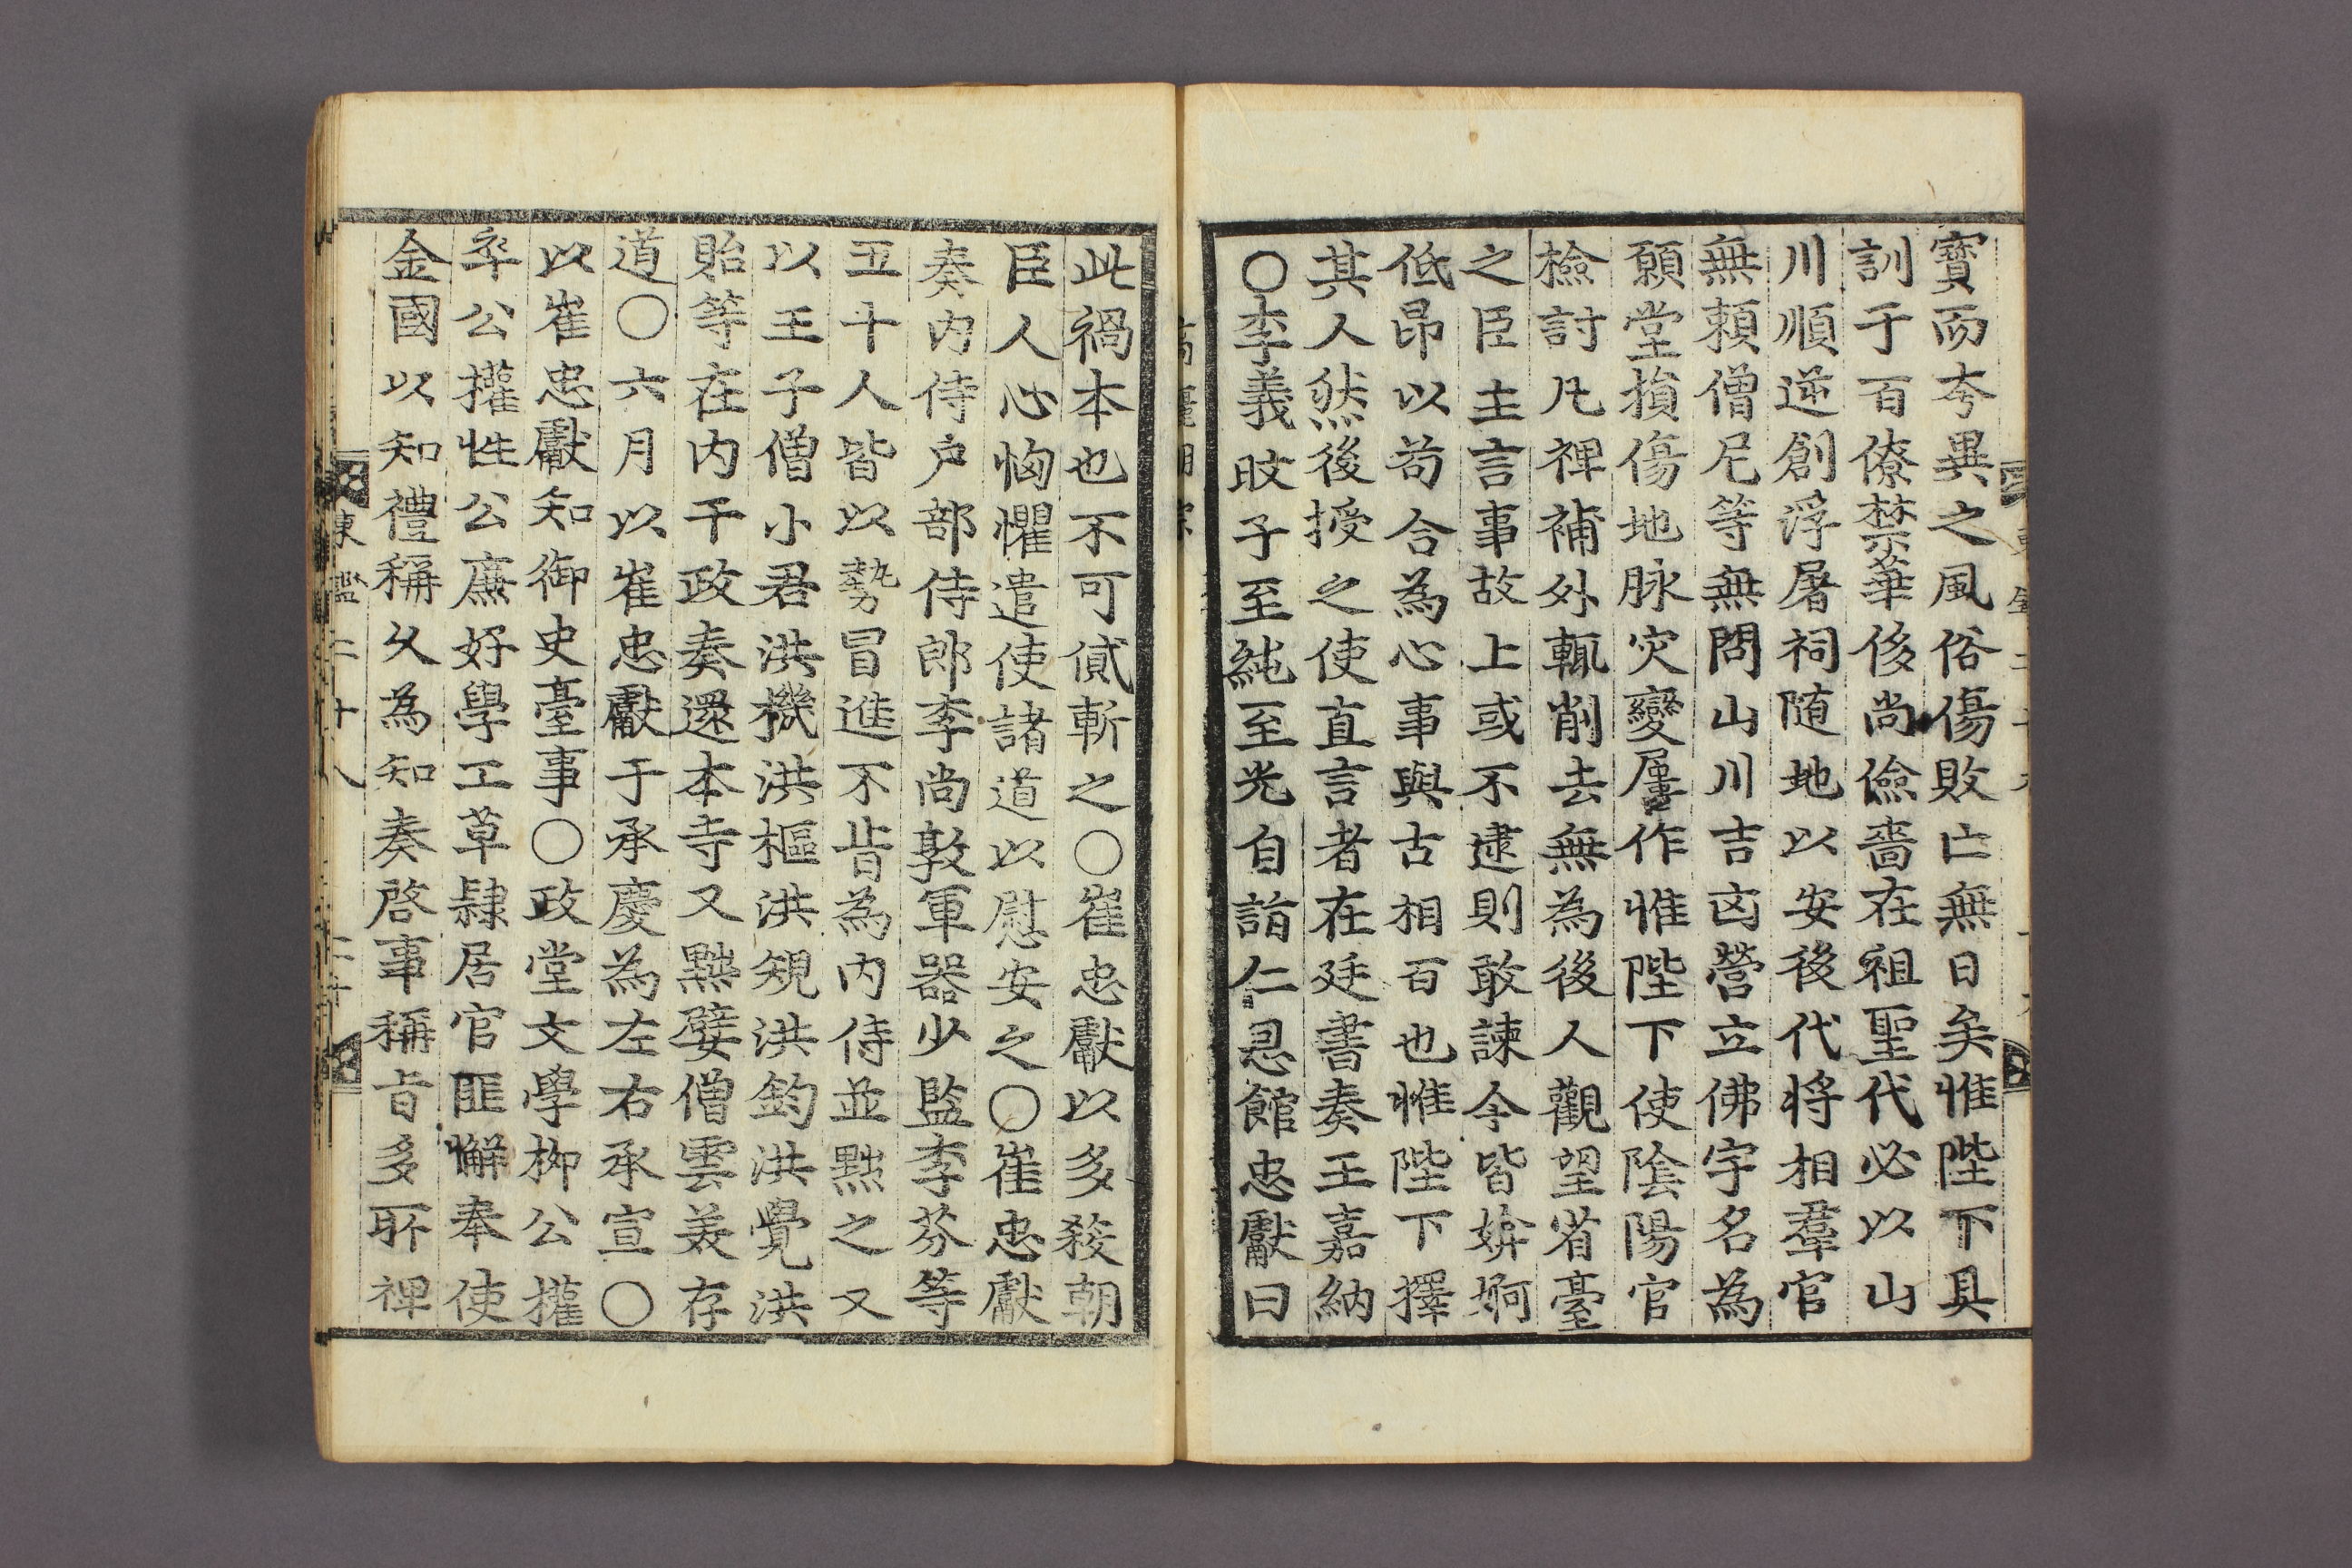 寶而夸異之風俗傷敗亡無日矣惟陛下具
訓于百僚禁華侈尚儉嗇在祖聖代必以山
川順逆創浮屠祠随地以安後代将相羣官
無頼僧尼等無問山川吉㐫營立佛宇名為
願堂損傷地脉灾變屢作惟陛下使陰陽官
檢討凡裨補外輒削去無為後人觀望省臺
之臣主言事故上或不逮則敢諫今皆媕婀
低昂以苟合為心事與古相百也惟陛下擇
其人然後授之使直言者在廷書奏王嘉納
○李義旼子至純至光自詣仁恩館忠獻曰
高麗明宗
此禍本也不可貸斬之○崔忠獻以多殺朝
臣人心恟懼遣使諸道以慰安之○崔忠獻
奏内侍户部侍郎李尚敦軍器少監李芬等
五十人皆以勢冒進不㫖為内侍並黜之又
以王子僧小君洪機洪樞洪規洪鈞洪覺洪
貽等在内干政奏還本寺又黜嬖僧雲美存
道○六月以崔忠獻于承慶為左右承宣○
以崔忠獻知御史臺事○政堂文學柳公權
卒公權性公廉好學工草隷居官匪懈奉使
金國以知禮稱久為知奏啓事稱㫖多所裨
東鑑二十八